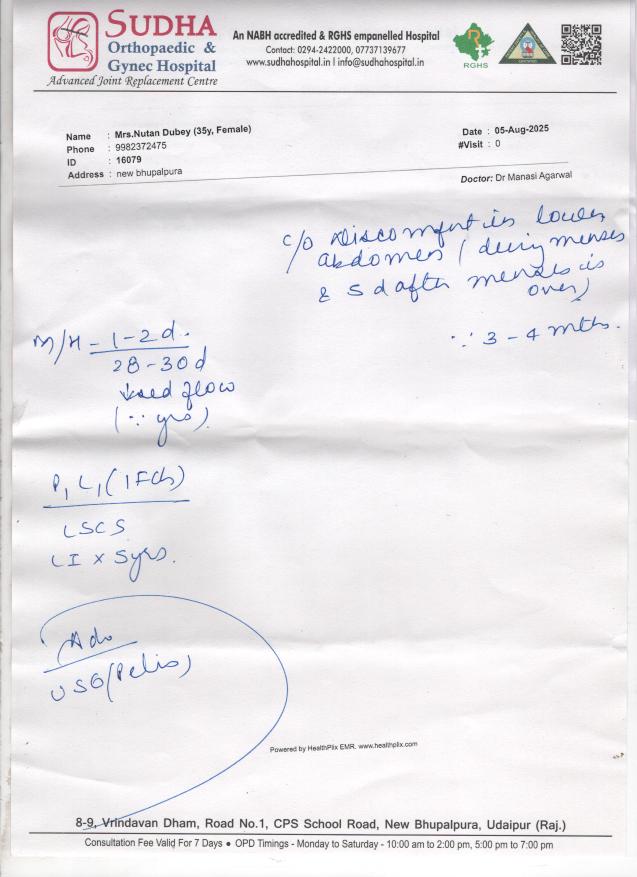 SUDHA
Orthopaedic &
Gynec Hospital
Advanced Joint Replacement Centre
An NABH accredited & RGHS empanelled Hospital
Contact: 0294-2422000, 07737139677
www.sudhahospital.in I info@sudhahospital.in
RGHS
Name : Mrs.Nutan Dubey (35y, Female)
Phone : 9982372475
ID : 16079
Address : new bhupalpura
Date : 05-Aug-2025
#Visit : 0
Doctor: Dr Manasi Agarwal
c/o Discomfort in lower
abdomen (during menses
& 5 d after menses is
over)
∵ 3 - 4 mths.
M/H - 1-2 d.
28-30 d
↓sed flow
(∵ yrs)
P1 L1 (1 FCh)
LSCS
LI x 5yrs.
Adv
USG (Pelvis)
Powered by HealthPlix EMR. www.healthplix.com
8-9, Vrindavan Dham, Road No.1, CPS School Road, New Bhupalpura, Udaipur (Raj.)
Consultation Fee Valid For 7 Days ● OPD Timings - Monday to Saturday - 10:00 am to 2:00 pm, 5:00 pm to 7:00 pm